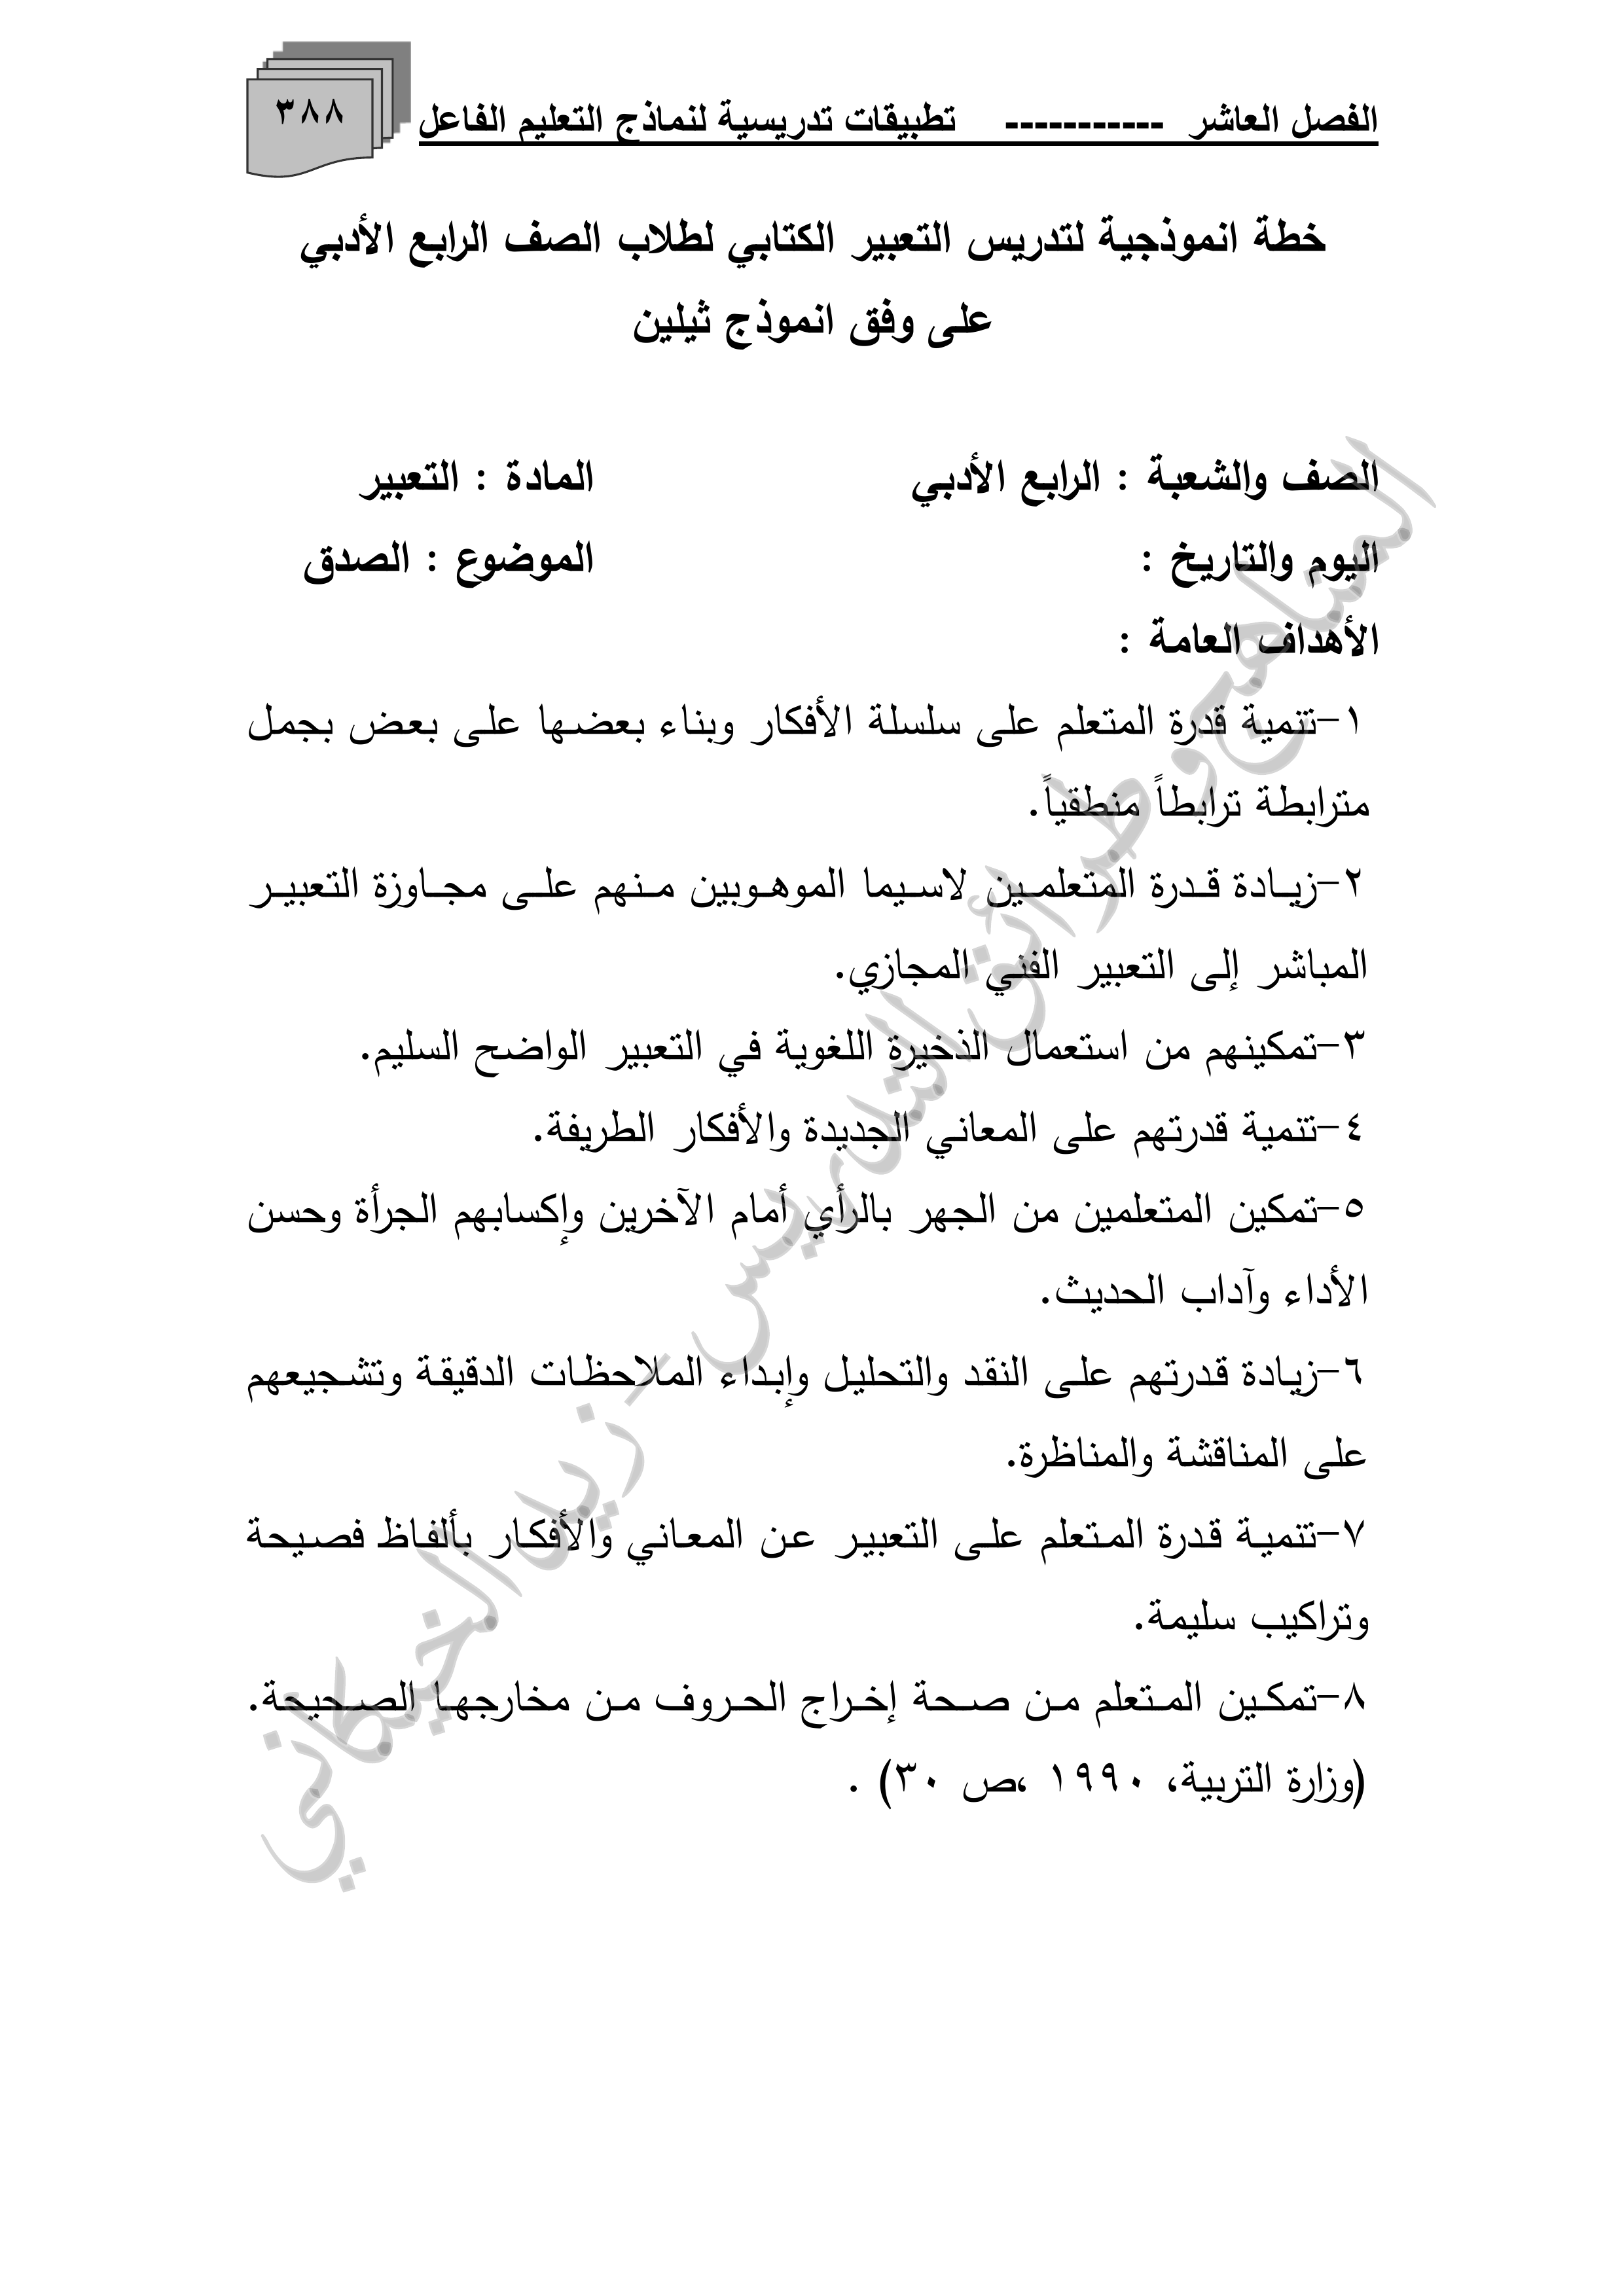 الفصل العاشر ----------- تطبيقات تدريسية لنماذج التعليم الفاعل
٣٨٨
خطة انموذجية لتدريس التعبير الكتابي لطلاب الصف الرابع الأدبي
على وفق انموذج ثيلين
الصف والشعبة : الرابع الأدبي المادة : التعبير
اليوم والتاريخ : الموضوع : الصدق
الأهداف العامة :
١-تنمية قدرة المتعلم على سلسلة الأفكار وبناء بعضها على بعض بجمل
مترابطة ترابطاً منطقياً.
٢-زيادة قدرة المتعلمين لاسيما الموهوبين منهم على مجاوزة التعبير
المباشر إلى التعبير الفني المجازي.
٣-تمكينهم من استعمال الذخيرة اللغوية في التعبير الواضح السليم.
٤-تنمية قدرتهم على المعاني الجديدة والأفكار الطريفة.
٥-تمكين المتعلمين من الجهر بالرأي أمام الآخرين وإكسابهم الجرأة وحسن
الأداء وآداب الحديث.
٦-زيادة قدرتهم على النقد والتحليل وإبداء الملاحظات الدقيقة وتشجيعهم
على المناقشة والمناظرة.
٧-تنمية قدرة المتعلم على التعبير عن المعاني والأفكار بألفاظ فصيحة
وتراكيب سليمة.
٨-تمكين المتعلم من صحة إخراج الحروف من مخارجها الصحيحة.
(وزارة التربية، ١٩٩٠ ،ص ٣٠) .
المناهج وطرائق التدريس - زيد الخيكاني